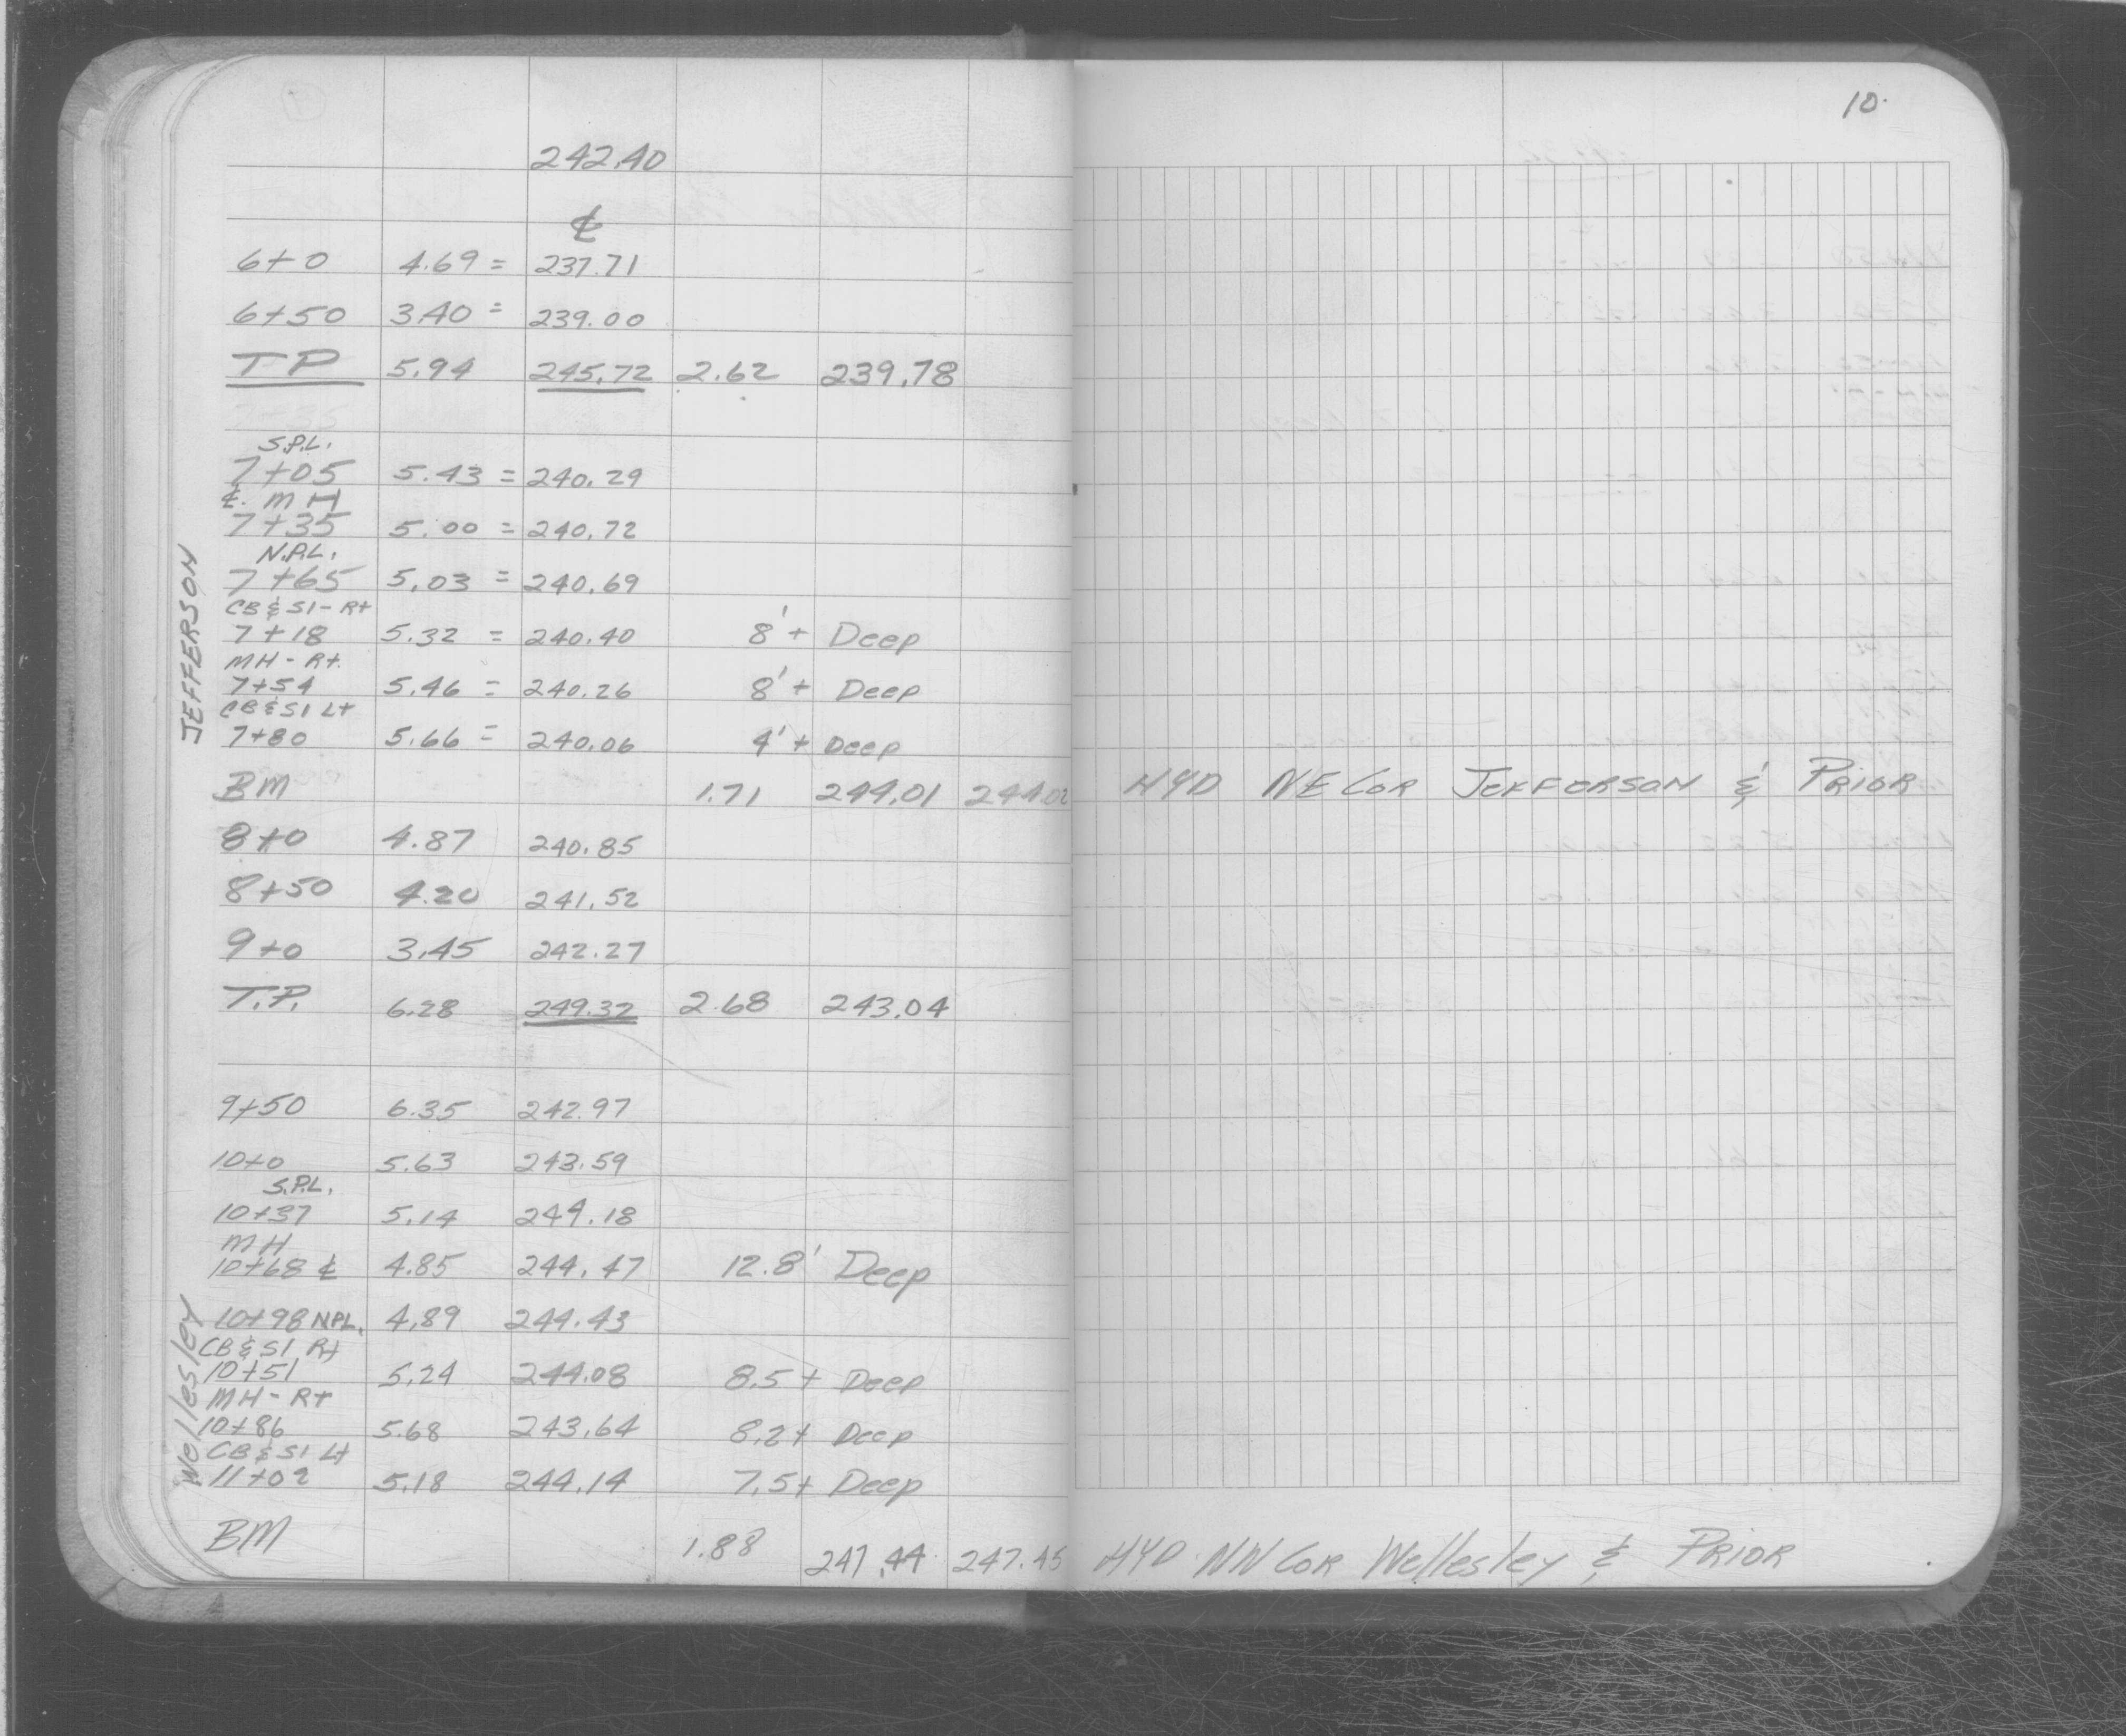 10.
242.40
℄
6+0 4.69 = 237.71
6+50 3.40 = 239.00
TP 5.94 245.72 2.62 239.78
S.P.L.
7+05 5.43 = 240.29
℄. MH
7+35 5.00 = 240.72
N.P.L.
7+65 5.03 = 240.69
CB & SI - Rt
7+18 5.32 = 240.40 8'+ Deep
MH - Rt.
7+54 5.46 = 240.26 8'+ Deep
CB & SI Lt
7+80 5.66 = 240.06 4'+ Deep
JEFFERSON
BM 1.71 244.01 244.02 HYD NE COR JEFFERSON & PRIOR
8+0 4.87 240.85
8+50 4.20 241.52
9+0 3.45 242.27
T.P. 6.28 249.32 2.68 243.04
9+50 6.35 242.97
10+0 5.63 243.59
S.P.L.
10+37 5.14 244.18
MH
10+68 ℄ 4.85 244.47 12.8' Deep
10+98 N.P.L. 4.89 244.43
CB & SI Rt
10+51 5.24 244.08 8.5+ Deep
MH - Rt
10+86 5.68 243.64 8.2+ Deep
CB & SI Lt
11+02 5.18 244.14 7.5+ Deep
Wellesley
BM 1.88 247.44 247.45 HYD NW COR Wellesley & PRIOR